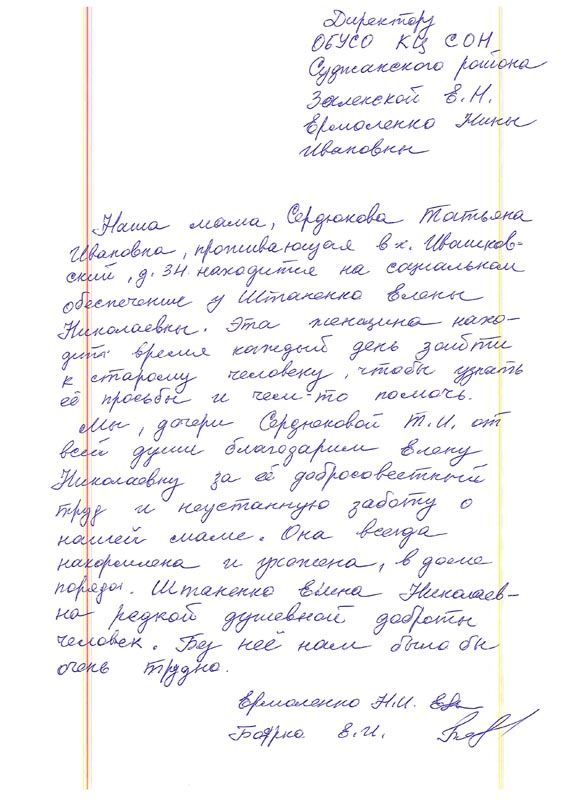 Директору
ОБУСО КЦ СОН
Суджанского района
Зеленской Е.Н.
Ермоленко Нины
Ивановны
Наша мама, Сердюкова Татьяна
Ивановна, проживающая в х. Ивашков-
ский, д. 34 находится на социальном
обеспечение у Штаненко Елены
Николаевны. Эта женщина нахо-
дить время каждый день зайти
к старому человеку, чтобы узнать
её просьбы и чем-то помочь.
Мы, дочери Сердюковой Т.И. от
всей души благодарим Елену
Николаевну за её добросовестный
труд и неустанную заботу о
нашей маме. Она всегда
накормлена и ухожена, в доме
порядок. Штаненко Елена Николаев-
на редкой душевной доброты
человек. Без неё нам было бы
очень трудно.
Ермоленко Н.И.
Е.И.